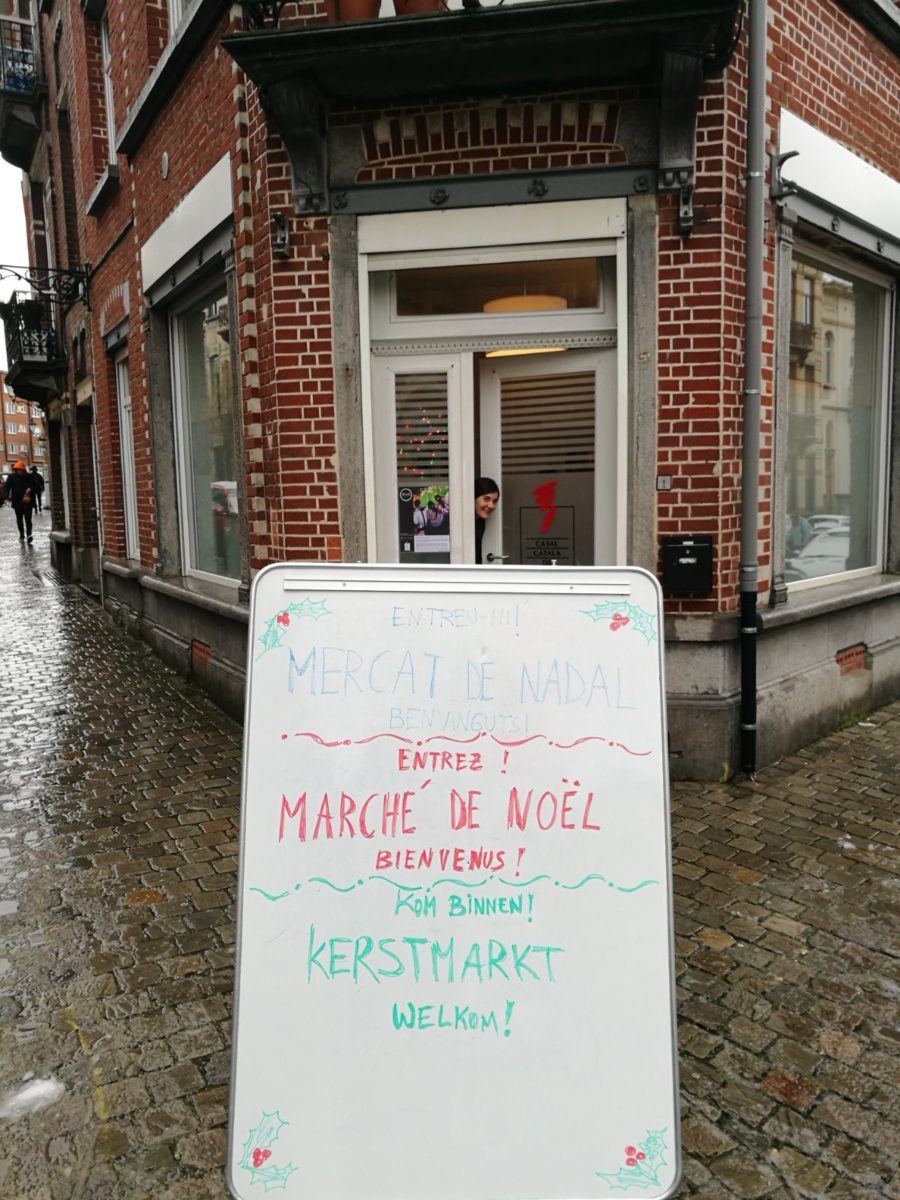 CASAL
CATALÀ
ENTREU-HI!
MERCAT DE NADAL
BENVINGUTS!
ENTREZ !
MARCHÉ DE NOËL
BIENVENUS !
KOM BINNEN!
KERSTMARKT
WELKOM!